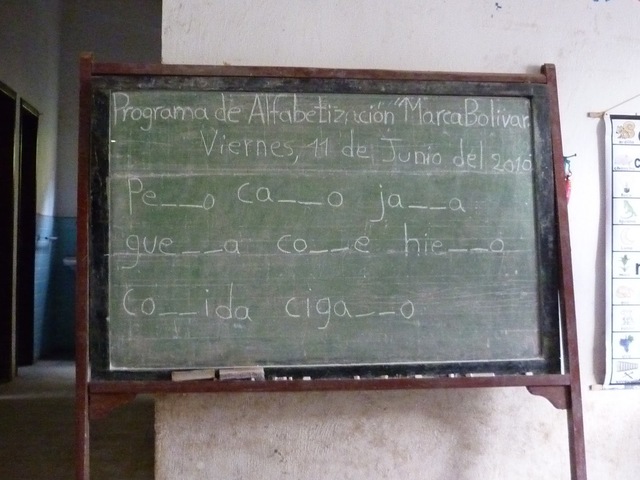 Programa de Alfabetización "Marca Bolivar.
Viernes, 11 de Junio del 2010
Pe__o ca__o ja__a
gue__a co__e hie__o
Co__ida ciga__o